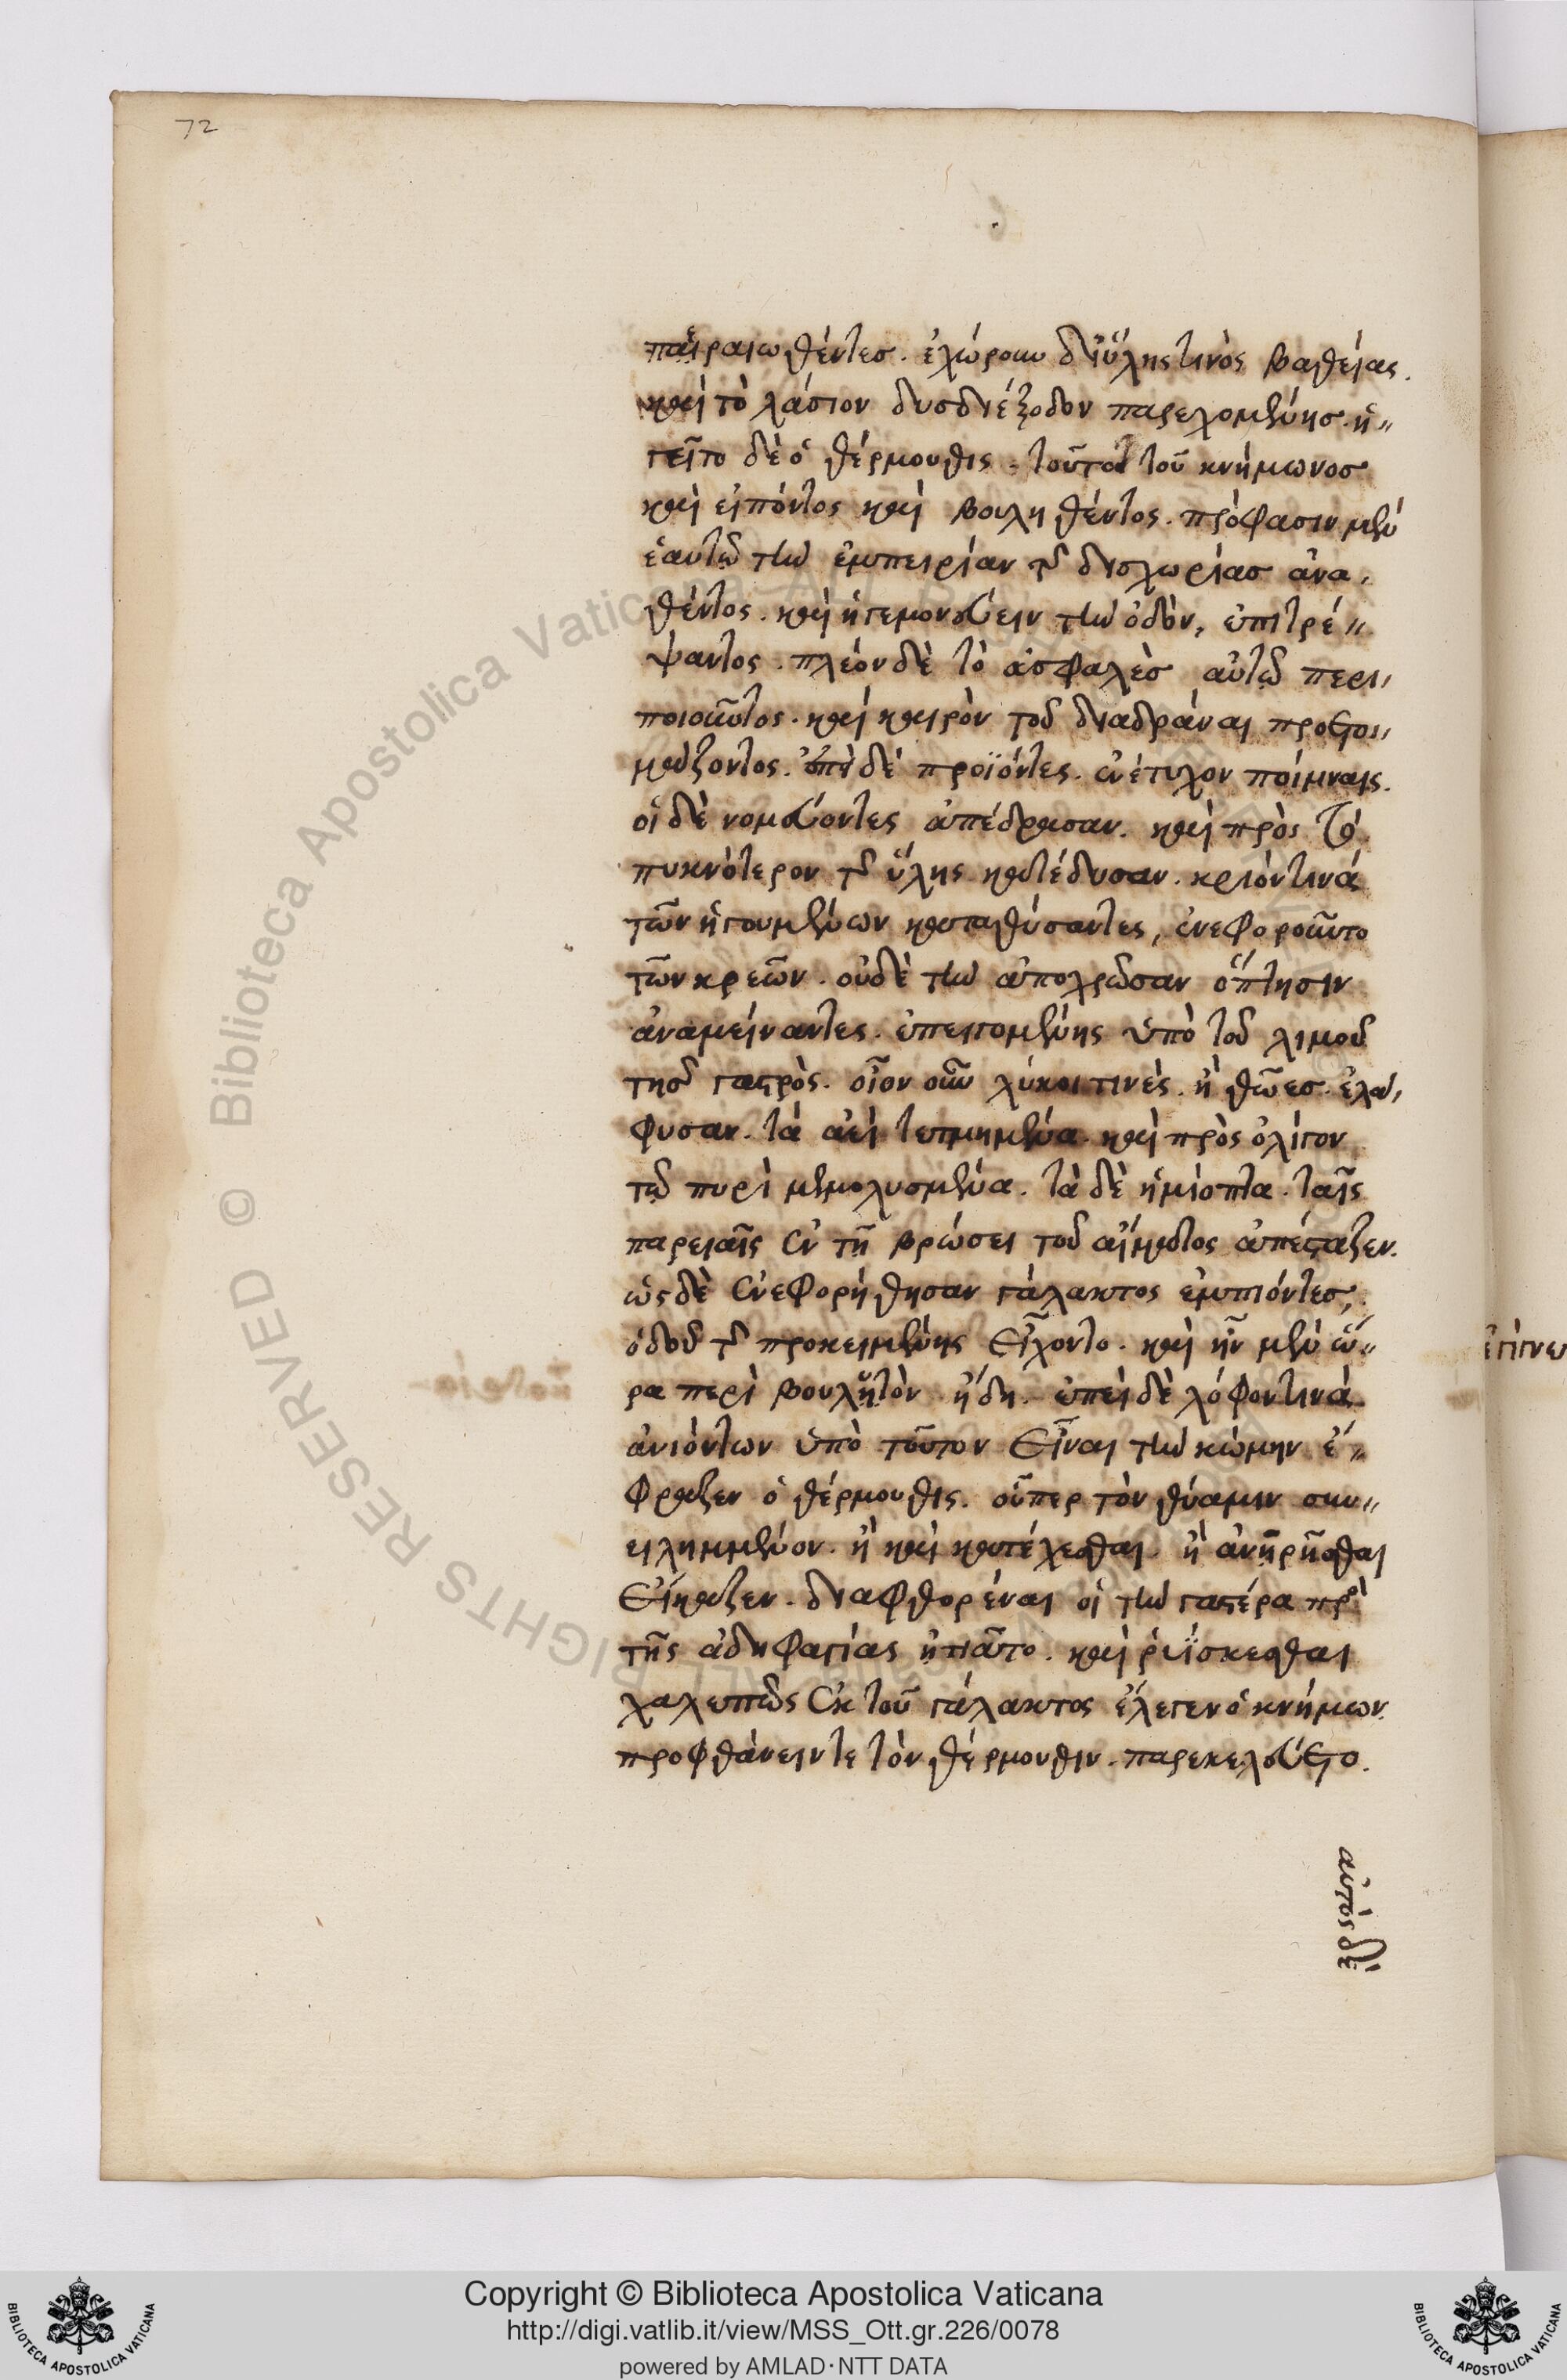 72
παιραιωθέντες. ἐχώρουν δι' ὕλης τινὸς βαθείας.
καὶ τὸ λάσιον δυσδιέξοδον παρεχομένης. ἡ„
γεῖτο δὲ ὁ θέρμουθις. τοῦτο τοῦ κνήμωνος
καὶ εἰπόντος καὶ βουληθέντος. πρόφασιν μὲν
ἑαυτῷ τὴν ἐμπειρίαν τῆς δυσχωρίας ἀνα,
θέντος. καὶ ἡγεμονεύειν τὴν ὁδὸν, ἐπιτρέ„
ψαντος. πλέον δὲ τὸ ἀσφαλὲς αὐτῷ περι„
ποιοῦντος. καὶ καιρὸν τοῦ διαδράναι προετοι„
μάζοντος. ἐπεὶ δὲ προϊόντες. ἐνέτυχον ποίμναις.
οἱ δὲ νομεύοντες ἀπέδρασαν. καὶ πρὸς τὸ
πυκνότερον τῆς ὕλης κατέδυσαν. κριόν τινά
τῶν ἡγουμένων καταθύσαντες, ἐνεφοροῦντο
τῶν κρεῶν. οὐδὲ τὴν ἀποχρῶσαν ὄπτησιν
ἀναμείναντες. ἐπειγομένης ὑπὸ τοῦ λιμοῦ
τῆς γαστρός. οἷον οὖν λύκοι τινὲς. ἢ θῶες. ἐλά,
φυσαν. τὰ ἀεὶ τετμημένα. καὶ πρὸς ὀλίγον
τῷ πυρὶ μεμολυσμένα. τὰ δὲ ἡμίοπτα. ταῖς
παρειαῖς ἐν τῇ βρώσει τοῦ αἵματος ἀπέσταζεν.
ὡς δὲ ἐνεφορήθησαν γάλακτος ἐμπιόντες,
ὁδοῦ τῆς προκειμένης εἴχοντο. καὶ ἦν μὲν ὥ„
ρα περὶ βουλητὸν ἤδη. ἐπεὶ δὲ λόφον τινὰ
ἀνιόντων ὑπὸ τοῦτον εἶναι τὴν κώμην ἔ„
φραζεν ὁ θέρμουθις. οὗπερ τὸν θύαμιν συν„
ειλημμένον. ἢ καὶ κατέχεσθαι. ἢ ἀνῃρῆσθαι
εἴκαζεν. διαφθορέναι οἱ τὴν γαστέρα παρὰ
τῆς ἀδηφαγίας ᾐτιᾶτο. καὶ ῥυΐσκεσθαι
χαλεπῶς ἐκ τοῦ γάλακτος ἔλεγεν ὁ κνήμων.
προφθάνειν τε τὸν θέρμουθιν. παρεκελεύετο.
Biblioteca Apostolica Vaticana ALL RIGHTS RESERVED ©
Copyright © Biblioteca Apostolica Vaticana
http://digi.vatlib.it/view/MSS_Ott.gr.226/0078
powered by AMLAD·NTT DATA
BIBLIOTECA APOSTOLICA VATICANA
BIBLIOTECA APOSTOLICA VATICANA